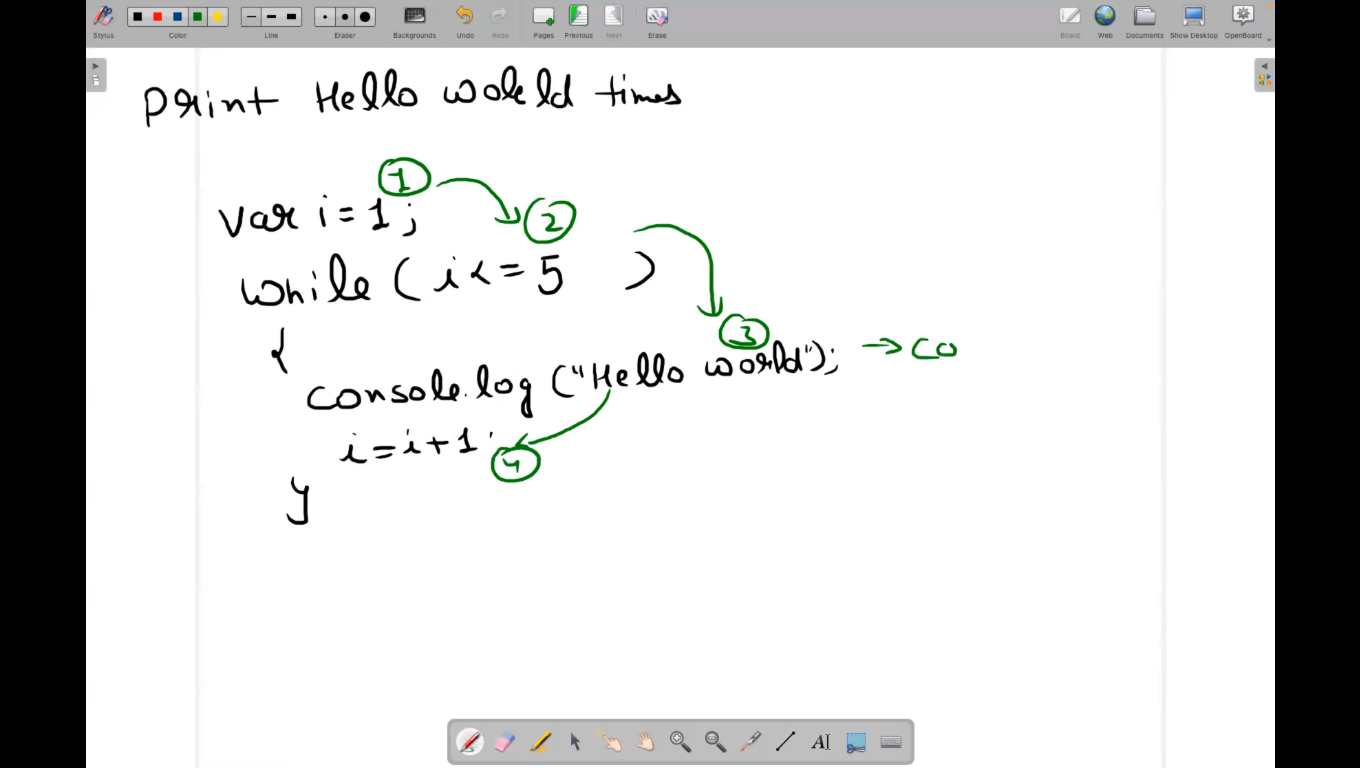 Stylus Color Line Eraser Backgrounds Undo Redo Pages Previous Next Erase Board Web Documents Show Desktop OpenBoard
print Hello world times
1
var i = 1;
2
while ( i <= 5 )
{
3
console.log ("Hello world"); → co
i = i + 1;
4
}
AI